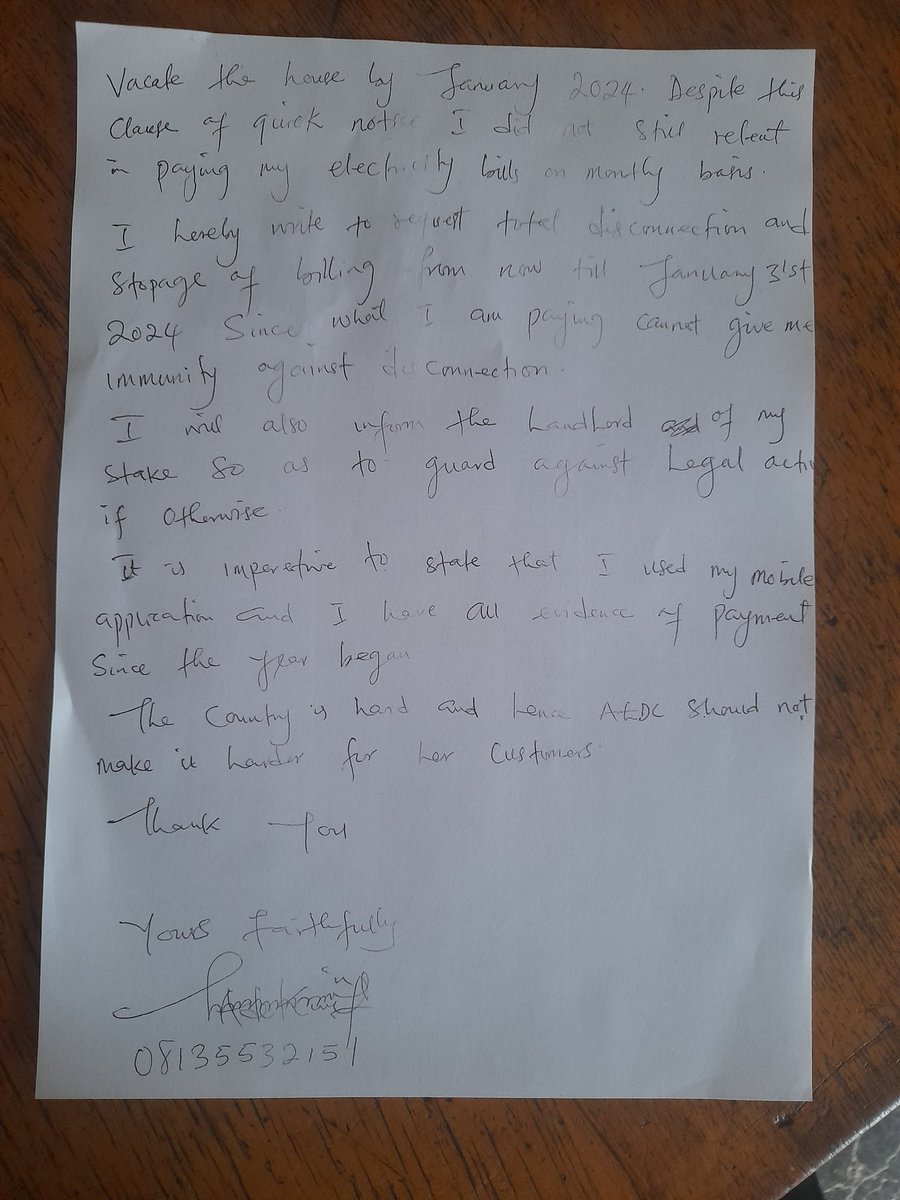 Vacate the house by January 2024. Despite this
Clause of quick notice I did not still relent
in paying my electricity bills on monthly basis.
I hereby write to request total disconnection and
Stopage of billing from now till January 31st
2024 Since what I am paying cannot give me
immunity against disconnection.
I will also inform the Landlord of my
stake so as to guard against Legal acti
if otherwise.
It is imperative to state that I used my mobile
application and I have all evidence of payment
Since the year began.
The Country is hard and hence AEDC should not
make it harder for her Customers.
Thank You
Yours Faithfully
08135532151